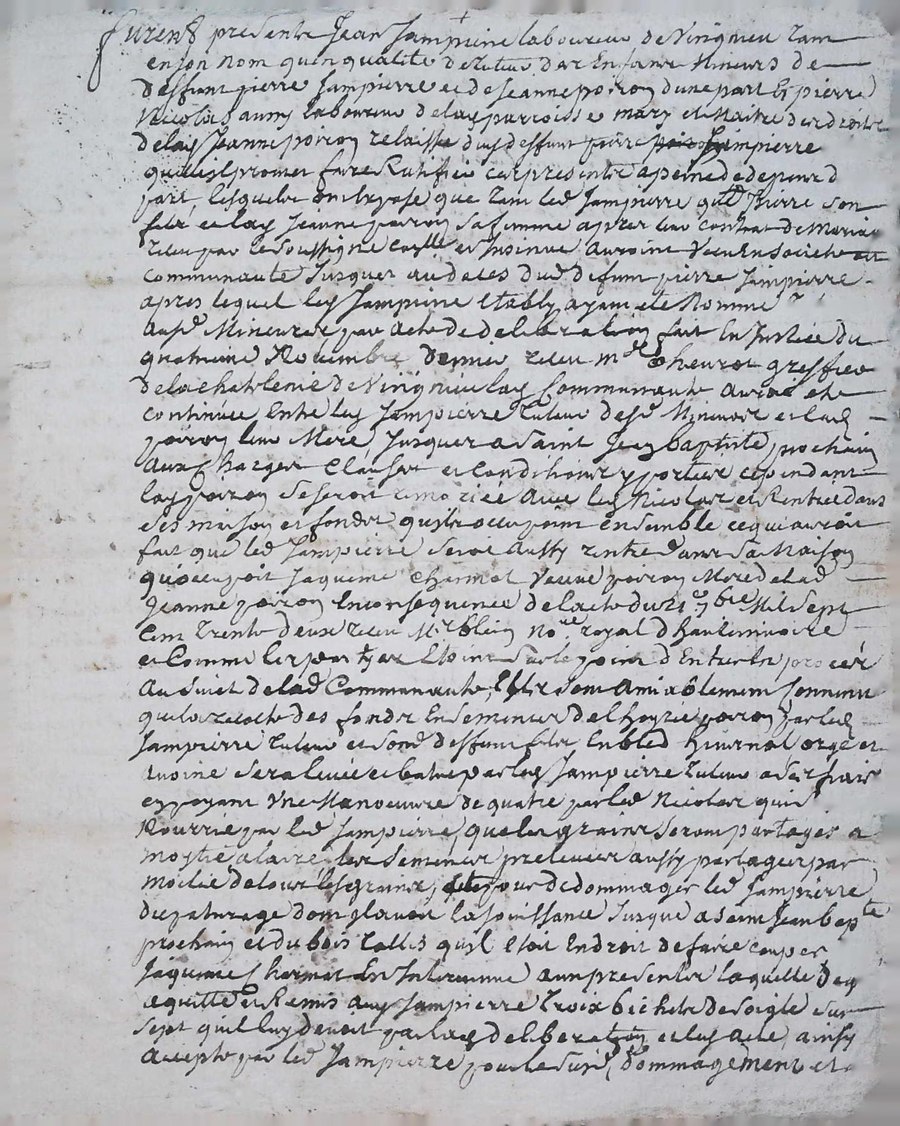 furent presents Jean Jampierre laboureur de Vingnieu tant
en son nom qu'en qualité de tuteur des Enfants Mineurs de
deffunt pierre Jampierre et de Jeanne poiron d'une part Et pierre
Nicolas aussy laboureur de lad parroisse mary et Maitre des droits
de lad Jeanne poiron relaissée dud deffunt pierre Jampierre
qu'il promet faire Ratifier ces presentes a peine de depens d
part lesquels ont exposé que tant led Jampierre que led Pierre son
frere et lad Jeanne poiron sa femme apres leur contrat de Mariage
receu par le soussigné et Insinué auroient Vecu en société et
communauté Jusques au deces dud defunt pierre Jampierre
apres lequel led Jampierre etably ayant eté Nommé
Mineurs par acte de deliberation fait En Justice du
quatrieme Novembre dernier receu me greffier
de la chatelenie de Vingnieu lad Communauté auroit eté
continuée Entre led Jampierre tuteur desd Mineurs et lad
poiron leur Mere Jusques a saint Jean baptiste prochain
aux Charges Clauses et conditions y portées cependant
lad poiron se seroit remariée avec led Nicolas et Rentrée dans
ses maison et fonds qu'ils occupoient ensemble ce qui auroit
fait que led Jampierre seroit aussy rentré dans sa Maison
qu'occupoit Jaqueme Charmot Veuve poiron Mere de lad
Jeanne poiron En consequence de l'acte du 21e 7bre Mil sept
Cent Trente deux receu Mr blein nore royal d'hauterivoire
et Comme les parties Etoient sur le point d'Entrer En procés
au sujet de lad Communauté, Elles sont amiablement Convenu
que la recolte des fonds Ensemencés de l'hoyrie poiron par led
Jampierre tuteur et sond deffunt frere En bled hivernal orge et
avoine sera levée et batue par led Jampierre tuteur a ses frais
en payant Une Manoeuvre de quatre par led Nicolas qui
Nourrie par led Jampierre, que les grains seront partagés a
moytié a l'aire, les semences prelevées aussy partagées par
moitié de tous les grains, pour dedommager led Jampierre
du paturage dont il avoit la Jouissance Jusque a saint Jean bapte
prochain et du bois taillis qu'il etoit En droit de faire couper
Jaqueme Charmot En Intervenue aux presentes laquelle
a quitté et Remis aud Jampierre trois bichets de soigle sur
sept qu'il luy devoit par lad deliberation et led acte ainsy
accepté par led Jampierre pour le susd dommagement et